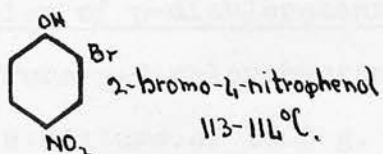 OH
Br
2-bromo-4-nitrophenol
113-114°C.
NO₂